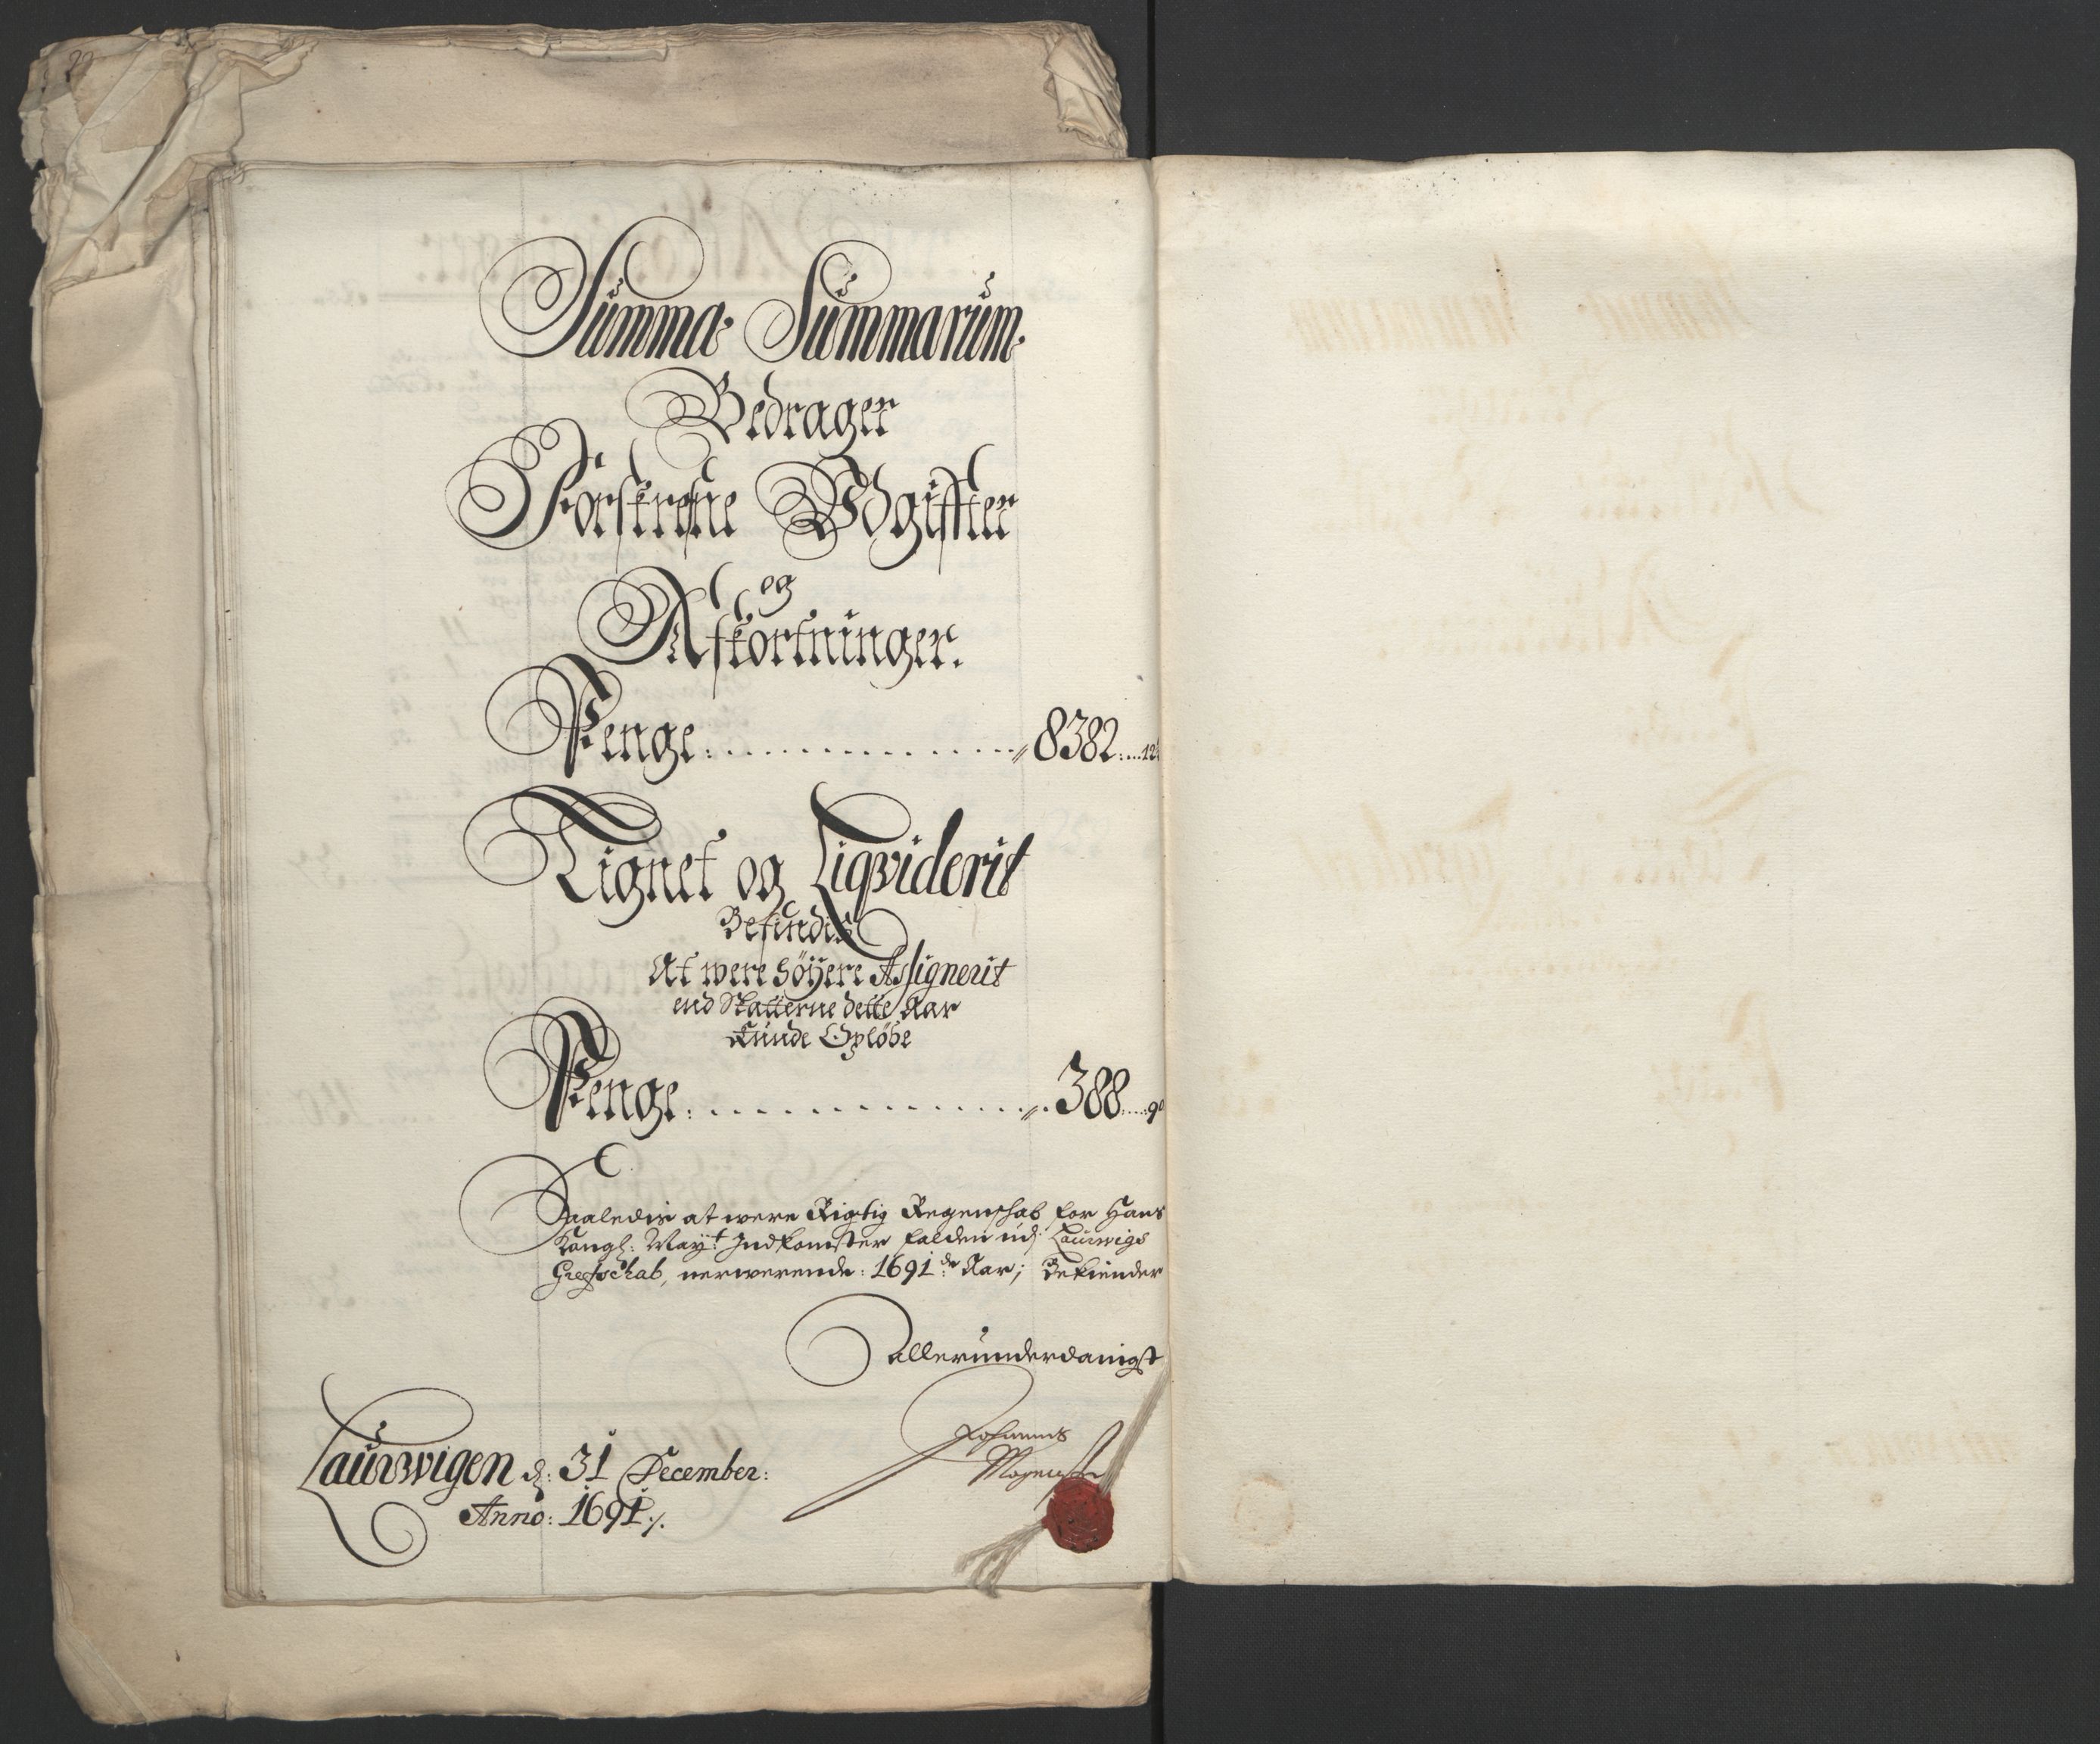 22
Summa Summarum
Bedrager
Forskrefne Wdgiffter
og
Afkortninger.
Penge: 8382
Lignet og Liqviderit
Befindis
At were Höyere Assignerit
end Skatterne dette Aar
Kunde Opløbe
Penge: 388
Saaledis at were Rigtig Regenskab for Hans
Kongl: May:t Indkomster falden udj Laurwigs
Grefschab, nerwerende: 1691 de Aar; Bekiender
allerunderdanigst
Johannes
Laurwigen d: 31 December:
Anno: 1691 /.